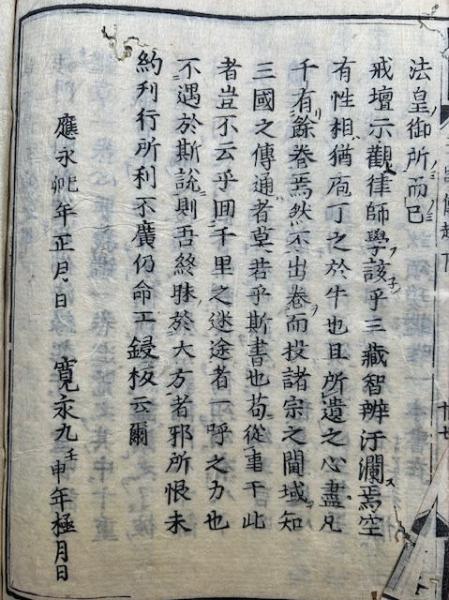 十七
法皇御所而已
戒壇示觀律師學該乎三藏智辨汙瀾焉空
有性相猶庖丁之於牛也且所遺之心盡凡
千有餘卷焉然不出卷而投諸宗之閫域知
三國之傳通者莫若乎斯書也苟從事于此
者豈不云乎囬千里之迷途者一呼之力也
不遇於斯說則吾終昧於大方者邪所恨未
約刋行所利不廣仍命工鋟板云爾
應永年正月日 寛永九壬申年極月日